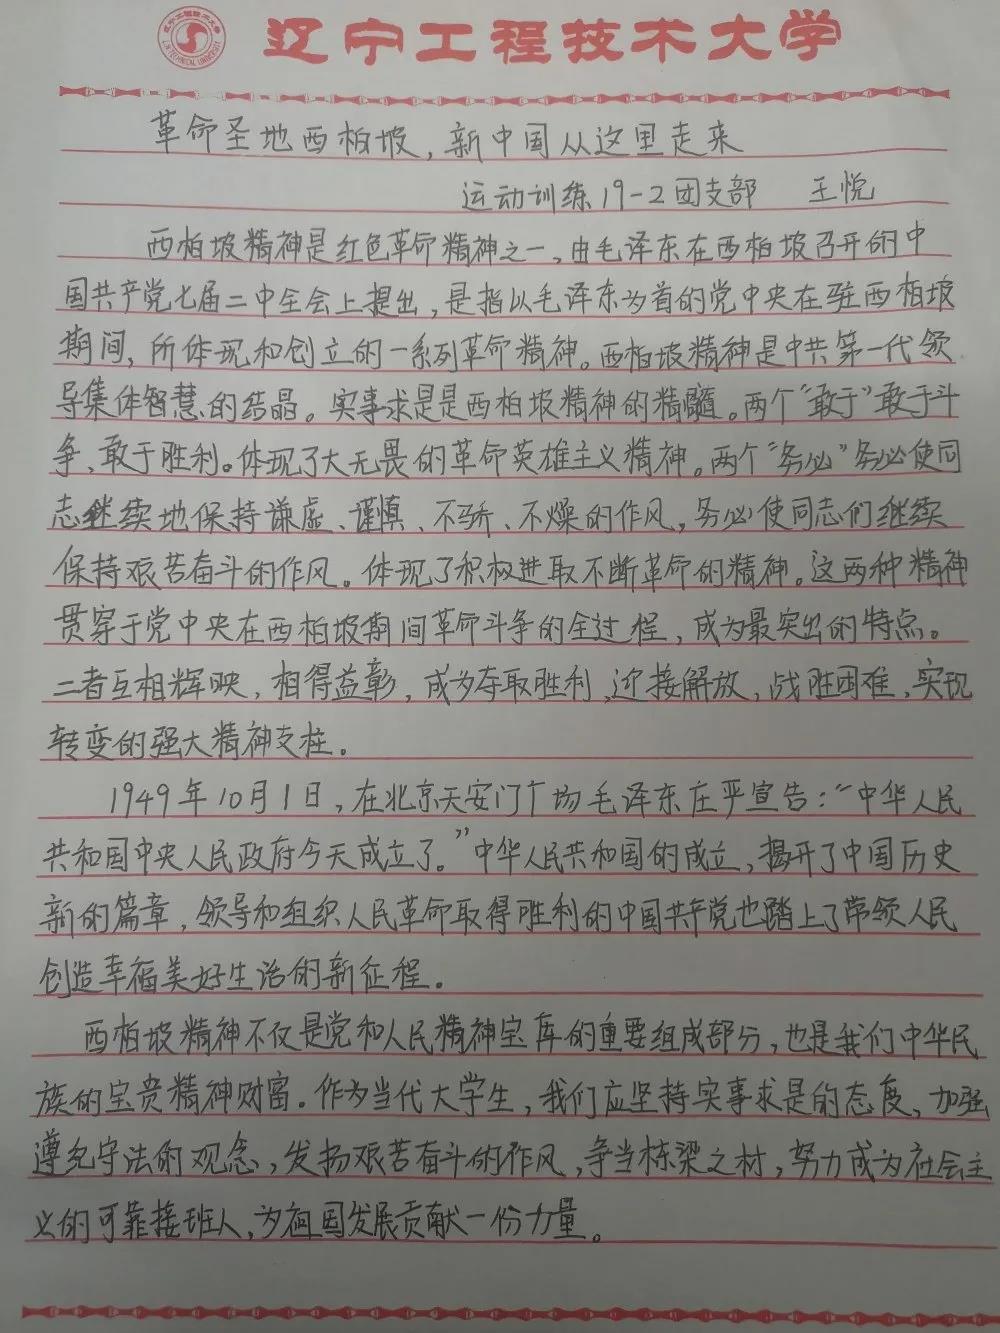 辽宁工程技术大学
革命圣地西柏坡，新中国从这里走来
运动训练19-2团支部 王悦
西柏坡精神是红色革命精神之一，由毛泽东在西柏坡召开的中
国共产党七届二中全会上提出，是指以毛泽东为首的党中央在驻西柏坡
期间，所体现和创立的一系列革命精神。西柏坡精神是中共第一代领
导集体智慧的结晶。实事求是是西柏坡精神的精髓。两个“敢于”敢于斗
争、敢于胜利。体现了大无畏的革命英雄主义精神。两个“务必”务必使同
志继续地保持谦虚、谨慎、不骄、不燥的作风，务必使同志们继续
保持艰苦奋斗的作风。体现了积极进取不断革命的精神。这两种精神
贯穿于党中央在西柏坡期间革命斗争的全过程，成为最突出的特点。
二者互相辉映，相得益彰，成为夺取胜利，迎接解放，战胜困难，实现
转变的强大精神支柱。
1949年10月1日，在北京天安门广场毛泽东庄严宣告：“中华人民
共和国中央人民政府今天成立了。”中华人民共和国的成立，揭开了中国历史
新的篇章，领导和组织人民革命取得胜利的中国共产党也踏上了带领人民
创造幸福美好生活的新征程。
西柏坡精神不仅是党和人民精神宝库的重要组成部分，也是我们中华民
族的宝贵精神财富。作为当代大学生，我们应坚持实事求是的态度、加强
遵纪守法的观念，发扬艰苦奋斗的作风，争当栋梁之材，努力成为社会主
义的可靠接班人，为祖国发展贡献一份力量。